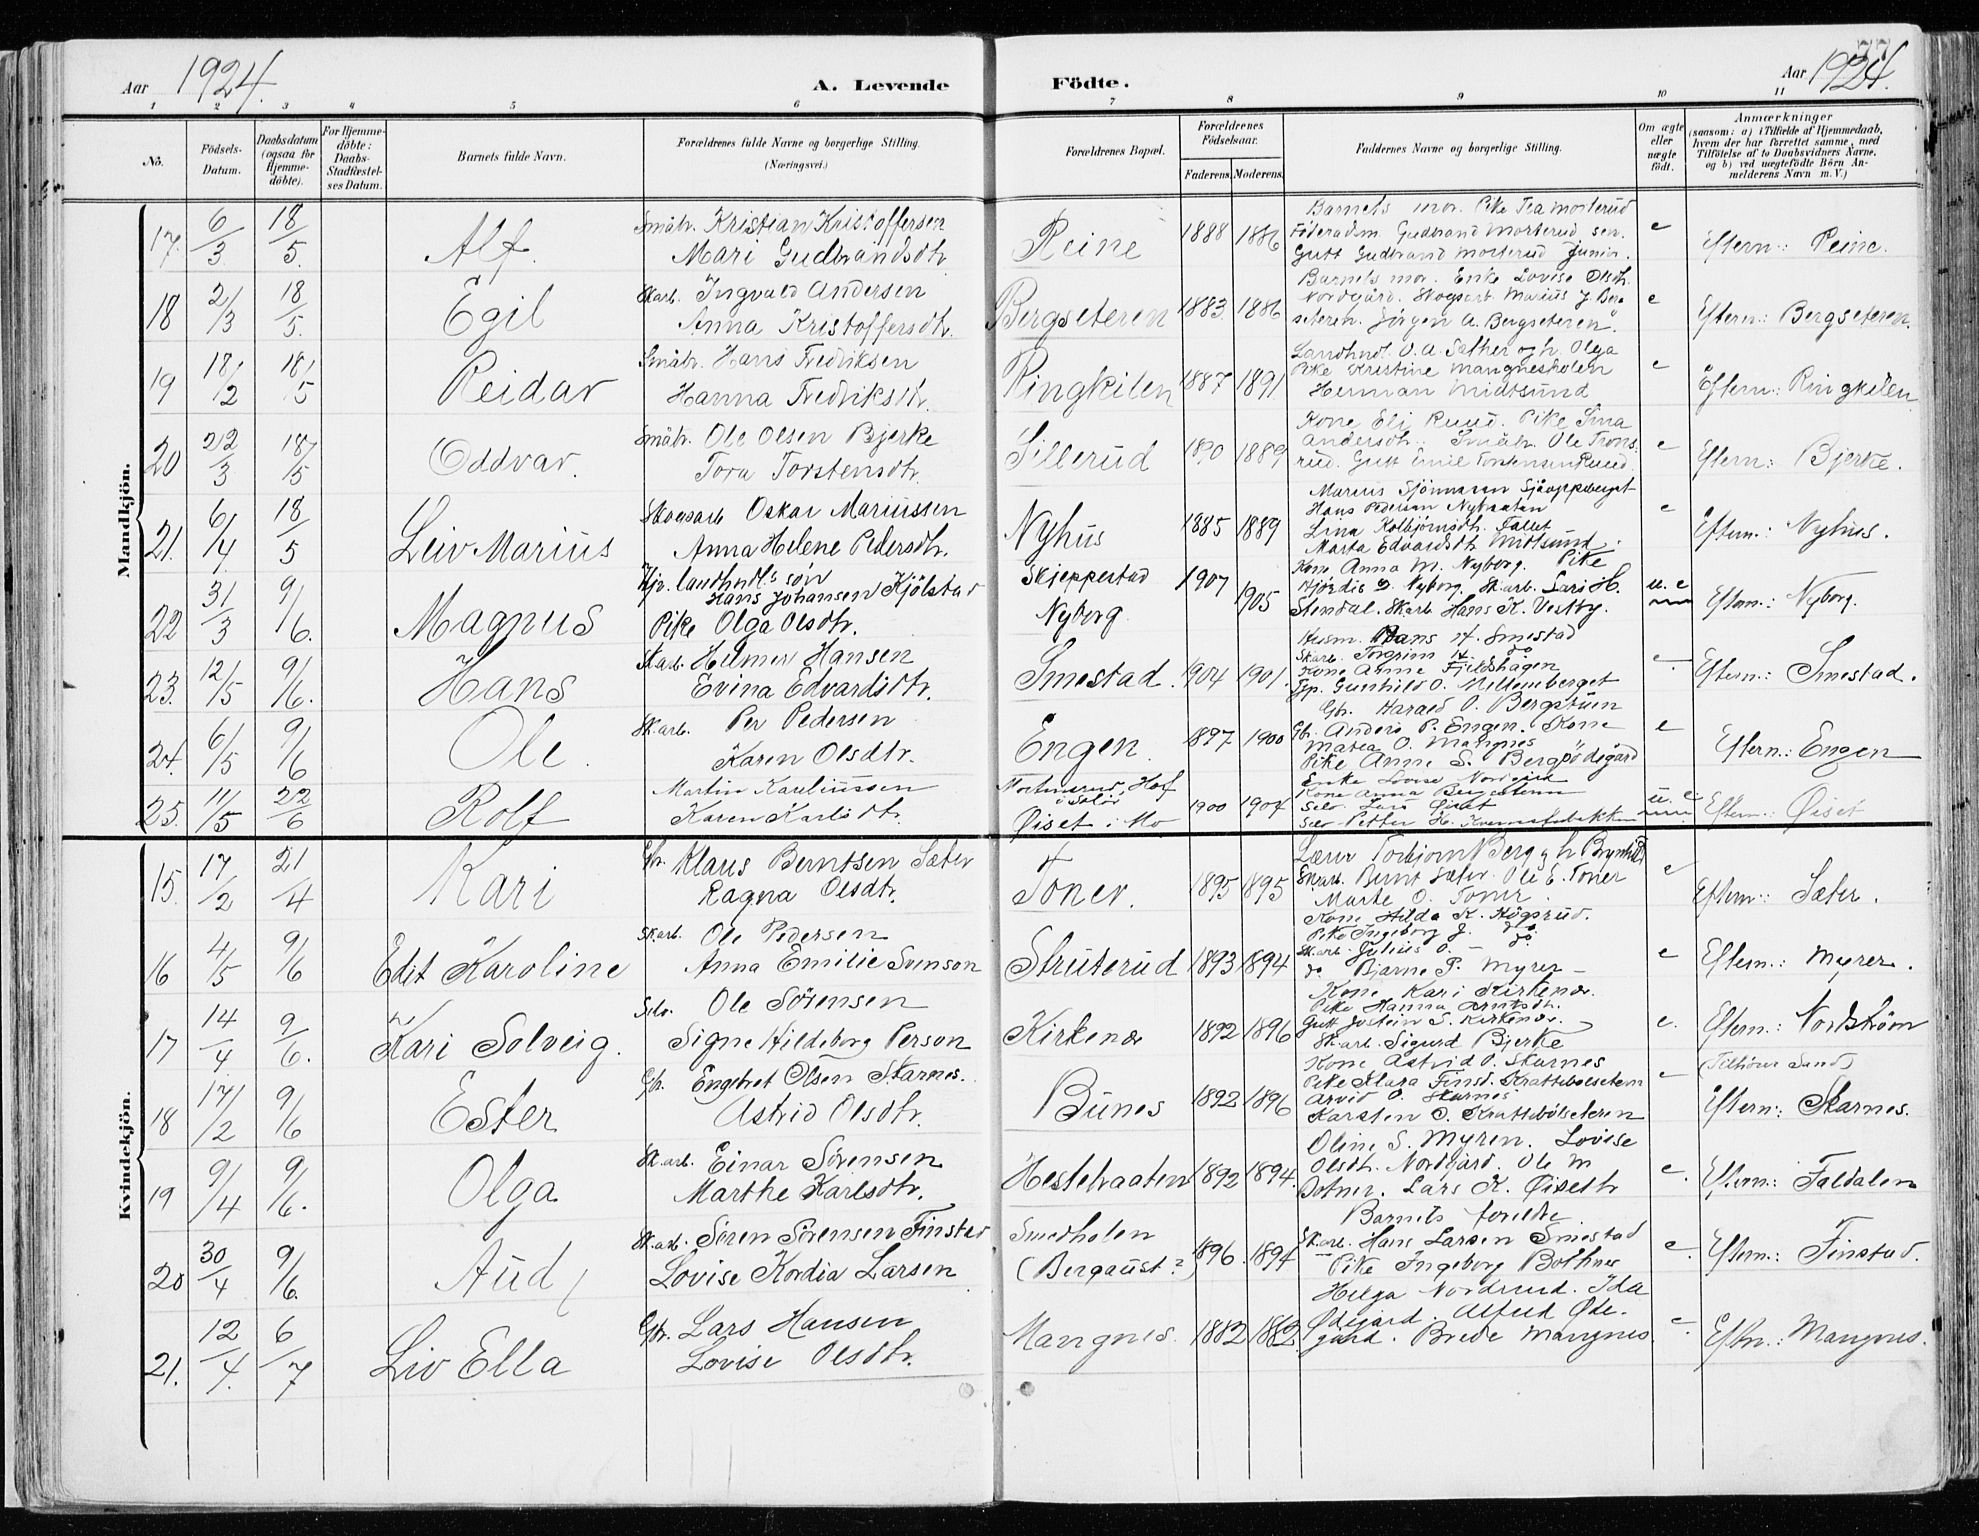 77
Aar 1924. A. Levende Födte. Aar 1924.
1 2 3 4 5 6 7 8 9 10 11
No. Födsels-Datum. Daabsdatum (ogsaa for Hjemme-döbte). For Hjemme-döbte: Daabs-Stadfæstel-ses Datum. Barnets fulde Navn. Forældrenes fulde Navne og borgerlige Stilling. (Næringsvei.) Forældrenes Bopæl. Forældrenes Födselsaar. Faderens Moderens Faddernes Navne og borgerlige Stilling. Om ægte eller uægte födt. Anmærkninger (saasom: a) i Tilfælde af Hjemmedaab, hvem der har forrettet samme, med Tilföielse af to Daabsvidners Navne, og b) ved uægtefödte Börn An-melderens Navn m. V.)
Mandkjön.
17. 6/3 18/5. Alf. Småbr. Kristian Kristoffersen
Mari Gudbrandsdtr. Reine 1888 1886 Barnets mor. Pike Tea Morterud
Föderådm. Gudbrand Morterud sen.
Gutt Gudbrand Morterud junior. e Eftern.: Reine.
18 2/3 18/5. Egil Skarb. Ingvald Andersen
Anna Kristoffersdtr. Bergseteren 1883. 1886 Barnets mor. Enke Lovise Olsdtr.
Nordgård. Skogsarb. Marius J. Berg-
seteren. Jörgen A. Bergseteren. e Eftern.: Bergseteren.
19 18/2 18/5 Reidar Småbr. Hans Fredriksen
Hanna Fredriksdtr. Ringkilen 1887 1891 Landhndl. O. A. Sæther og h. Olga
Pike Kristine Mangnesholen
Herman Midtsund e Eftern.: Ringkilen
20 22/3 18/5 Oddvar. Småbr. Ole Olsen Bjerke
Tora Torstensdtr. Sillerud 1890 1889 Kone Eli Ruud. Pike Tina
Andersdtr. Småbr. Ole Trons-
rud. Gutt Emil Torstensen Ruud. e Eftern.: Bjerke.
21. 6/4 18/5 Leiv Marius Skogsarb Oskar Mariussen
Anna Helene Pedersdtr. Nyhus 1885 1889
Hans Pedersen
Lina Kolbjørnsdtr. Fallet
Marta Edvardsdtr Midtsund. e Eftern.: Nyhus.
22 31/3 9/6. Magnus Hjv. landhndl.s søn
Hans Johansen Kjölstad
Pike Olga Olsdtr. Skjeppestad
Nyborg 1907 1905 Kone Anna M. Nyborg. Pike
Hjördis D. Nyborg. Sk.arb. Lars H.
Stendal. Skarb Hans K. Vestby. u. e Eftern.: Nyborg.
23. 12/5 9/6. Hans Skarb. Helmer Hansen
Evina Edvardsdtr. Smestad. 1904 1901. Husm. Hans H. Smestad
Skarb. Torfinn H. do
Kone Anne Fjeldshagen
Gunhild O. Mellemberget e. Eftern.: Smestad.
24. 6/5 9/6 Ole. Sk.arb. Per Pedersen
Karen Olsdtr. Engen. 1897 1900 Gbr. Harald O. Bergstuen
Gbr. Anders P. Engen. Kone
Matea O. Mangnes
Pike Anne S. Bergsödegård e Eftern.: Engen
25. 11/5 22/6 Rolf Martin Karliussen
Karen Karlsdtr. Hof
i Solör
Øiset i Mo 1900 1904 Enke Lovise Nordgård
Kone Anna Bergseteren
Selv. Lars Øiset
Selv. Petter H. u. e. Eftern.: Øiset
Kvindekjön.
15. 17/2 21/4 Kari Gbr. Klaus Berntsen Sæter
Ragna Olsdtr. Toner. 1895 1895 Lærer Torbjørn Berg og h. Brynhild
Sk.arb. Bernt Sæter. Ole E. Toner
Marte O. Toner. e Eftern.: Sæter.
16 4/5 9/6 Edit Karoline Sk.arb. Ole Pedersen
Anna Emilie Svenson Struterud 1893 1894 Kone Hilda K. Högsrud.
Pike Ingeborg J. do
Sk.arb Julius O. — do
do Bjarne P. Myrer — e Eftern.: Myrer.
17 14/4 9/6. Kari Solveig. Selv. Ole Sörensen
Signe Hildeborg Person Kirkenær 1892 1896 Kone Kari Kirkenær.
Pike Hanna Arntsdtr.
Gutt Jostein S. Kirkenær.
Sk.arb. Sigurd Bjerke e. Eftern.: Nordström
(Tilhörer Sand)
18 17/2 9/6 Ester Gbr. Engebret Olsen Skarnes.
Astrid Olsdtr. Bunes 1892 1896 Kone Astrid O. Skarnes
Pike Klara Finsd. Krattebölseteren
Arvid O. Skarnes
Karsten O. Krattebölseteren e Eftern.: Skarnes.
19 9/4 9/6. Olga Sk.arb. Einar Sörensen
Marthe Karlsdtr. Hestebraaten 1892 1894. Oline S. Myren. Lovise
Olsdtr. Nordgård. Ole M
Botner. Lars K. Øiseth e. Eftern.: Faldalen
20 30/4 9/6. Aud Sk.arb. Sören Sörensen Finstad
Lovise Kordia Larsen Smedholen
(Bergaust?) 1896. 1894 Barnets foreldre.
Sk.arb. Hans Larsen Smestad
Pike Ingeborg Bothner e. Eftern.: Finstad.
21. 12/4. 6/7 Liv Ella Gbr. Lars Hansen
Lovise Olsdtr. Mangnes. 1882 1882. Helga Nordrud. Ida
Ødegård. Alfred Øde-
gård. Brede Mangnes. e. Eftn.: Mangnes.